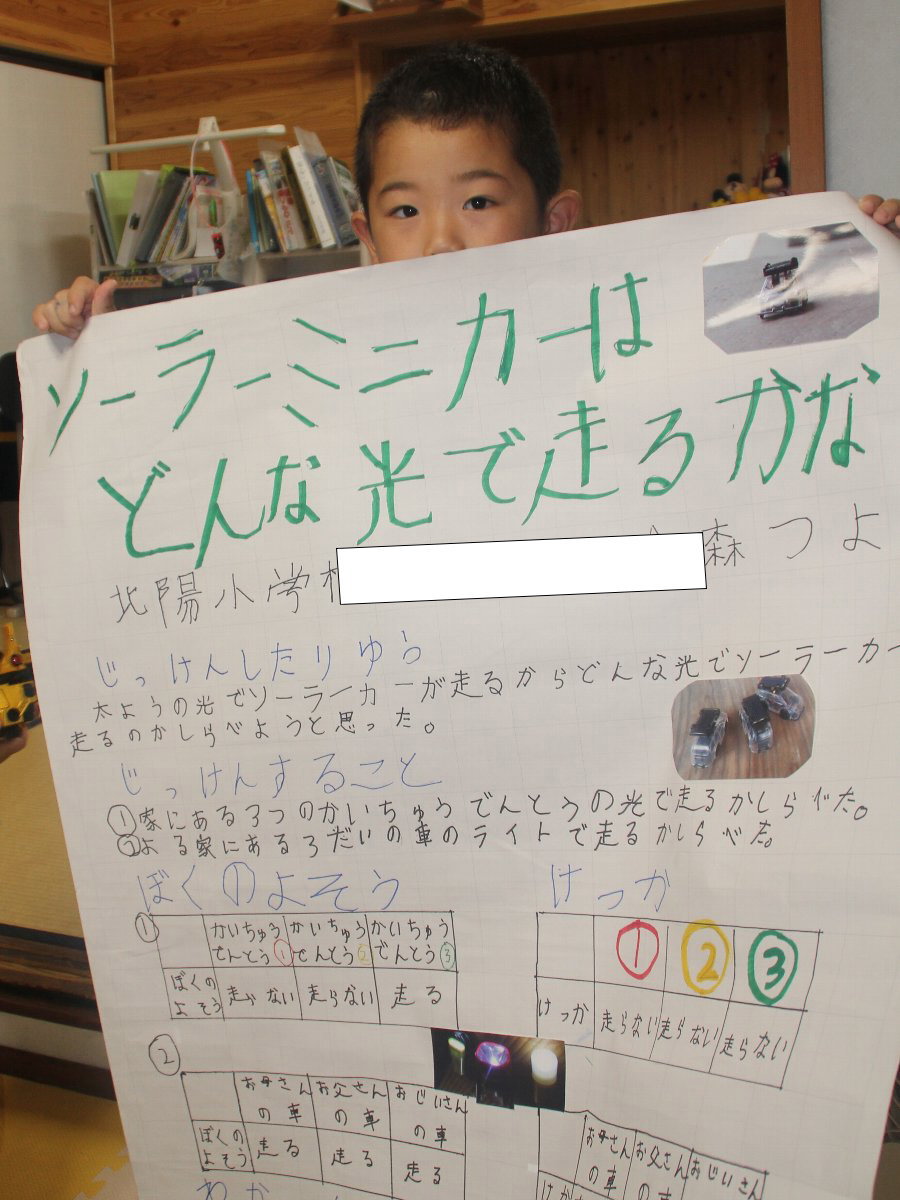 ソーラーミニカーは
どんな光で走るかな
北陽小学
森つよ
じっけんしたりゆう
太ようの光でソーラーカーが走るからどんな光でソーラーカー
走るのかしらべようと思った。
じっけんすること
①家にある3つのかいちゅうでんとうの光で走るかしらべた。
②よる家にある3だいの車のライトで走るかしらべた。
ぼくのよそう
けっか
①
かいちゅうでんとう① かいちゅうでんとう② かいちゅうでんとう③
ぼくのよそう 走らない 走らない 走る
① ② ③
けっか 走らない 走らない 走らない
②
お母さんの車 お父さんの車 おじいさんの車
ぼくのよそう 走る 走る 走る
お母さんの車 お父さんの車 おじいさん
けっか
わか